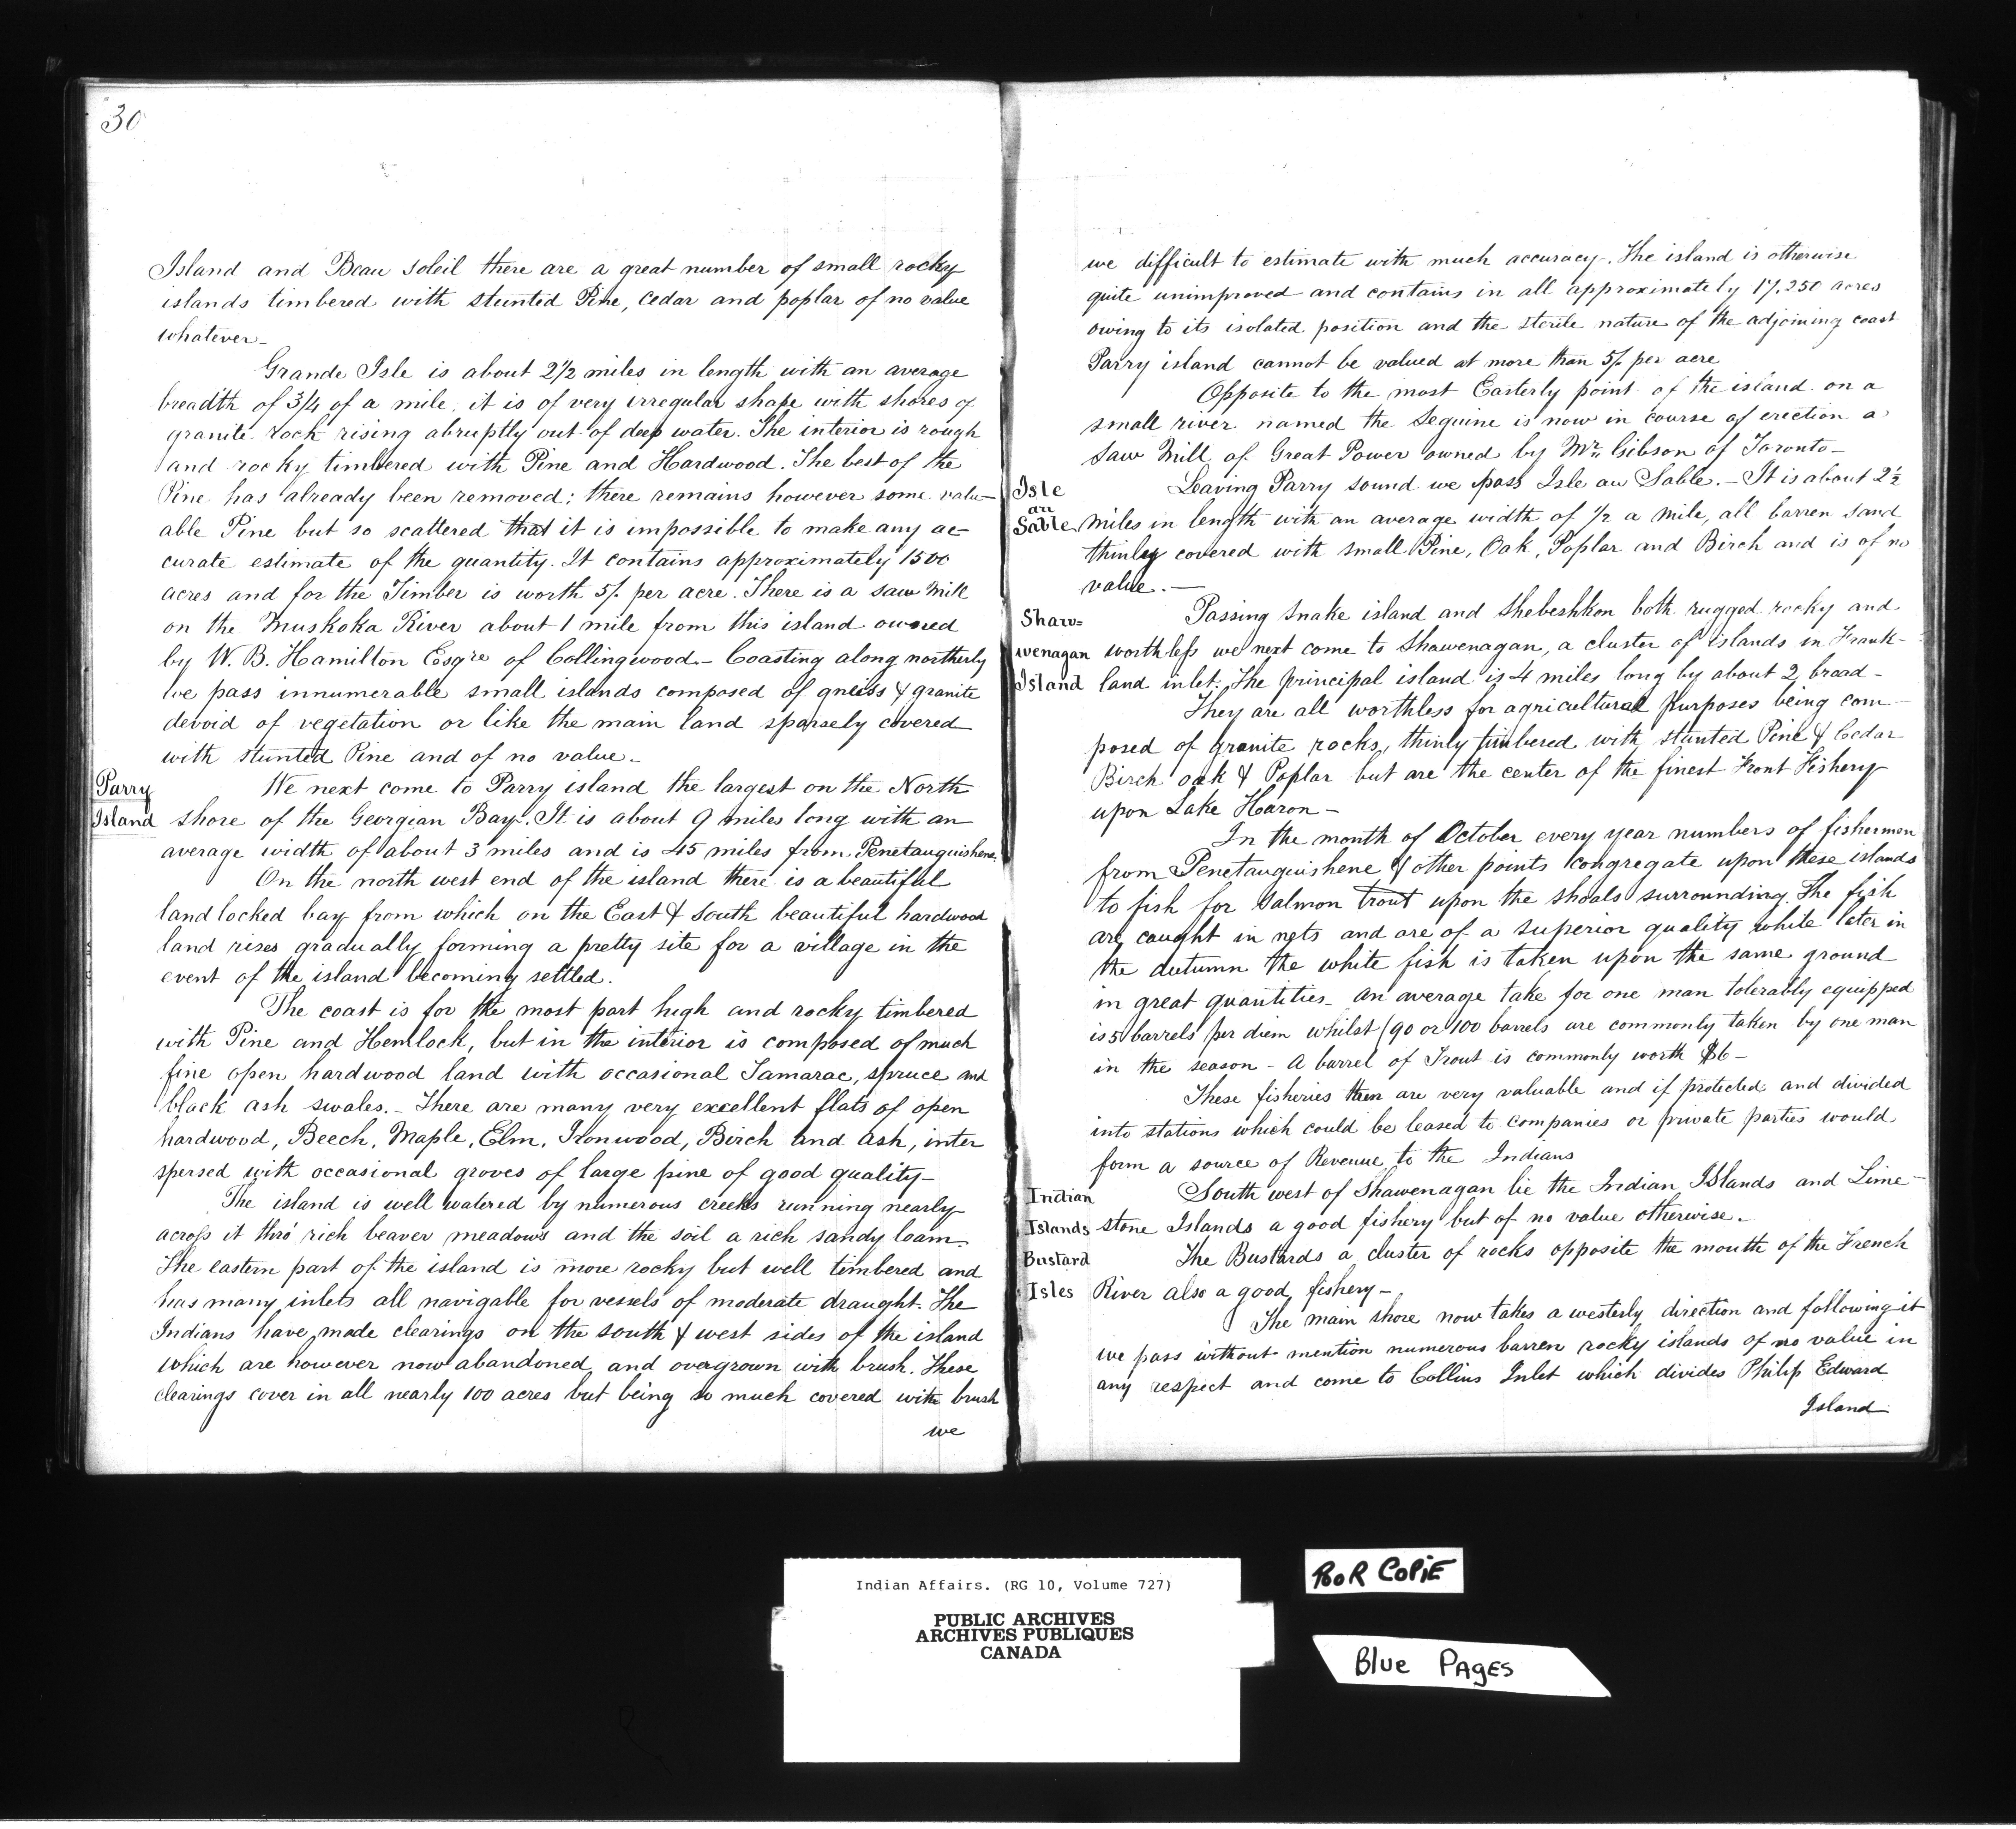 30
Island and Beau Soleil there are a great number of small rocky
islands timbered with stunted Pine, Cedar and poplar of no value
whatever_
Grande Isle is about 2 1/2 miles in length with an average
breadth of 3/4 of a mile, it is of very irregular shape with shores of
granite rock rising abruptly out of deep water. The interior is rough
and rocky timbered with Pine and Hardwood. The best of the
Pine has already been removed; there remains however some valu-
able Pine but so scattered that it is impossible to make any ac-
curate estimate of the quantity. It contains approximately 1500
acres and for the Timber is worth 5/. per acre. There is a saw Mill
on the Muskoka River about 1 mile from this island owned
by W. B. Hamilton Esqre of Collingwood_ Coasting along northerly
we pass innumerable small islands composed of gneiss & granite
devoid of vegetation or like the main land sparsely covered
with stunted Pine and of no value_
Parry We next come to Parry island the largest on the North
Island shore of the Georgian Bay. It is about 9 miles long with an
average width of about 3 miles and is 45 miles from Penetanguishene.
On the north west end of the island there is a beautiful
land locked bay from which on the East & South beautiful hardwood
land rises gradually forming a pretty site for a village in the
event of the island becoming settled.
The coast is for the most part high and rocky timbered
with Pine and Hemlock, but in the interior is composed of much
fine open hardwood land with occasional Tamarac, spruce and
black ash swales._ There are many very excellent flats of open
hardwood, Beech, Maple, Elm, Ironwood, Birch and ash, inter
spersed with occasional groves of large pine of good quality_
The island is well watered by numerous creeks running nearly
across it thro' rich beaver meadows and the soil a rich sandy loam.
The eastern part of the island is more rocky but well timbered and
has many inlets all navigable for vessels of moderate draught. The
Indians have made clearings on the south & west sides of the island
which are however now abandoned and overgrown with brush. These
clearings cover in all nearly 100 acres but being so much covered with brush
we
we difficult to estimate with much accuracy. The island is otherwise
quite unimproved and contains in all approximately 17.250 acres
owing to its isolated position and the sterile nature of the adjoining coast
Parry island cannot be valued at more than 5/. per acre
Opposite to the most Easterly point of the island on a
small river named the Seguine is now in course of erection a
Saw Mill of Great Power owned by Mr. Gibson of Toronto_
Isle Leaving Parry Sound we pass Isle au Sable._ It is about 2 1/2
au
Sable miles in length with an average width of 1/2 a mile, all barren sand
thinley covered with small Pine, Oak, Poplar and Birch and is of no
value._
Shaw= Passing Snake island and Shebeshkon both rugged rocky and
wenagan worthless we next come to Shawenagan, a cluster of islands in Frank-
Island land inlet. The principal island is 4 miles long by about 2 broad_
They are all worthless for agricultural purposes being com-
posed of granite rocks, thinly timbered with stunted Pine & Cedar
Birch oak & Poplar but are the center of the finest Front Fishery
upon Lake Huron_
In the month of October every year numbers of fishermen
from Penetanguishene & other points congregate upon these islands
to fish for Salmon trout upon the shoals surrounding. The fish
are caught in nets and are of a superior quality white later in
the autumn the white fish is taken upon the same ground
in great quantities_ An average take for one man tolerably equipped
is 5 barrels per diem whilst (90 or 100 barrels are commonly taken by one man
in the season_ A barrel of Trout is commonly worth $6_
These fisheries then are very valuable and if protected and divided
into stations which could be leased to companies or private parties would
form a source of Revenue to the Indians
Indian South west of Shawenagan lie the Indian Islands and Lime-
Islands stone Islands a good fishery but of no value otherwise_
Bustard The Bustards a cluster of rocks opposite the mouth of the French
Isles River also a good fishery_
The main shore now takes a westerly direction and following it
we pass without mention numerous barren rocky islands of no value in
any respect and come to Collins Inlet which divides Philip Edward
Island
Indian Affairs. (RG 10, Volume 727)
PUBLIC ARCHIVES
ARCHIVES PUBLIQUES
CANADA
POOR COPIE
Blue PAGES